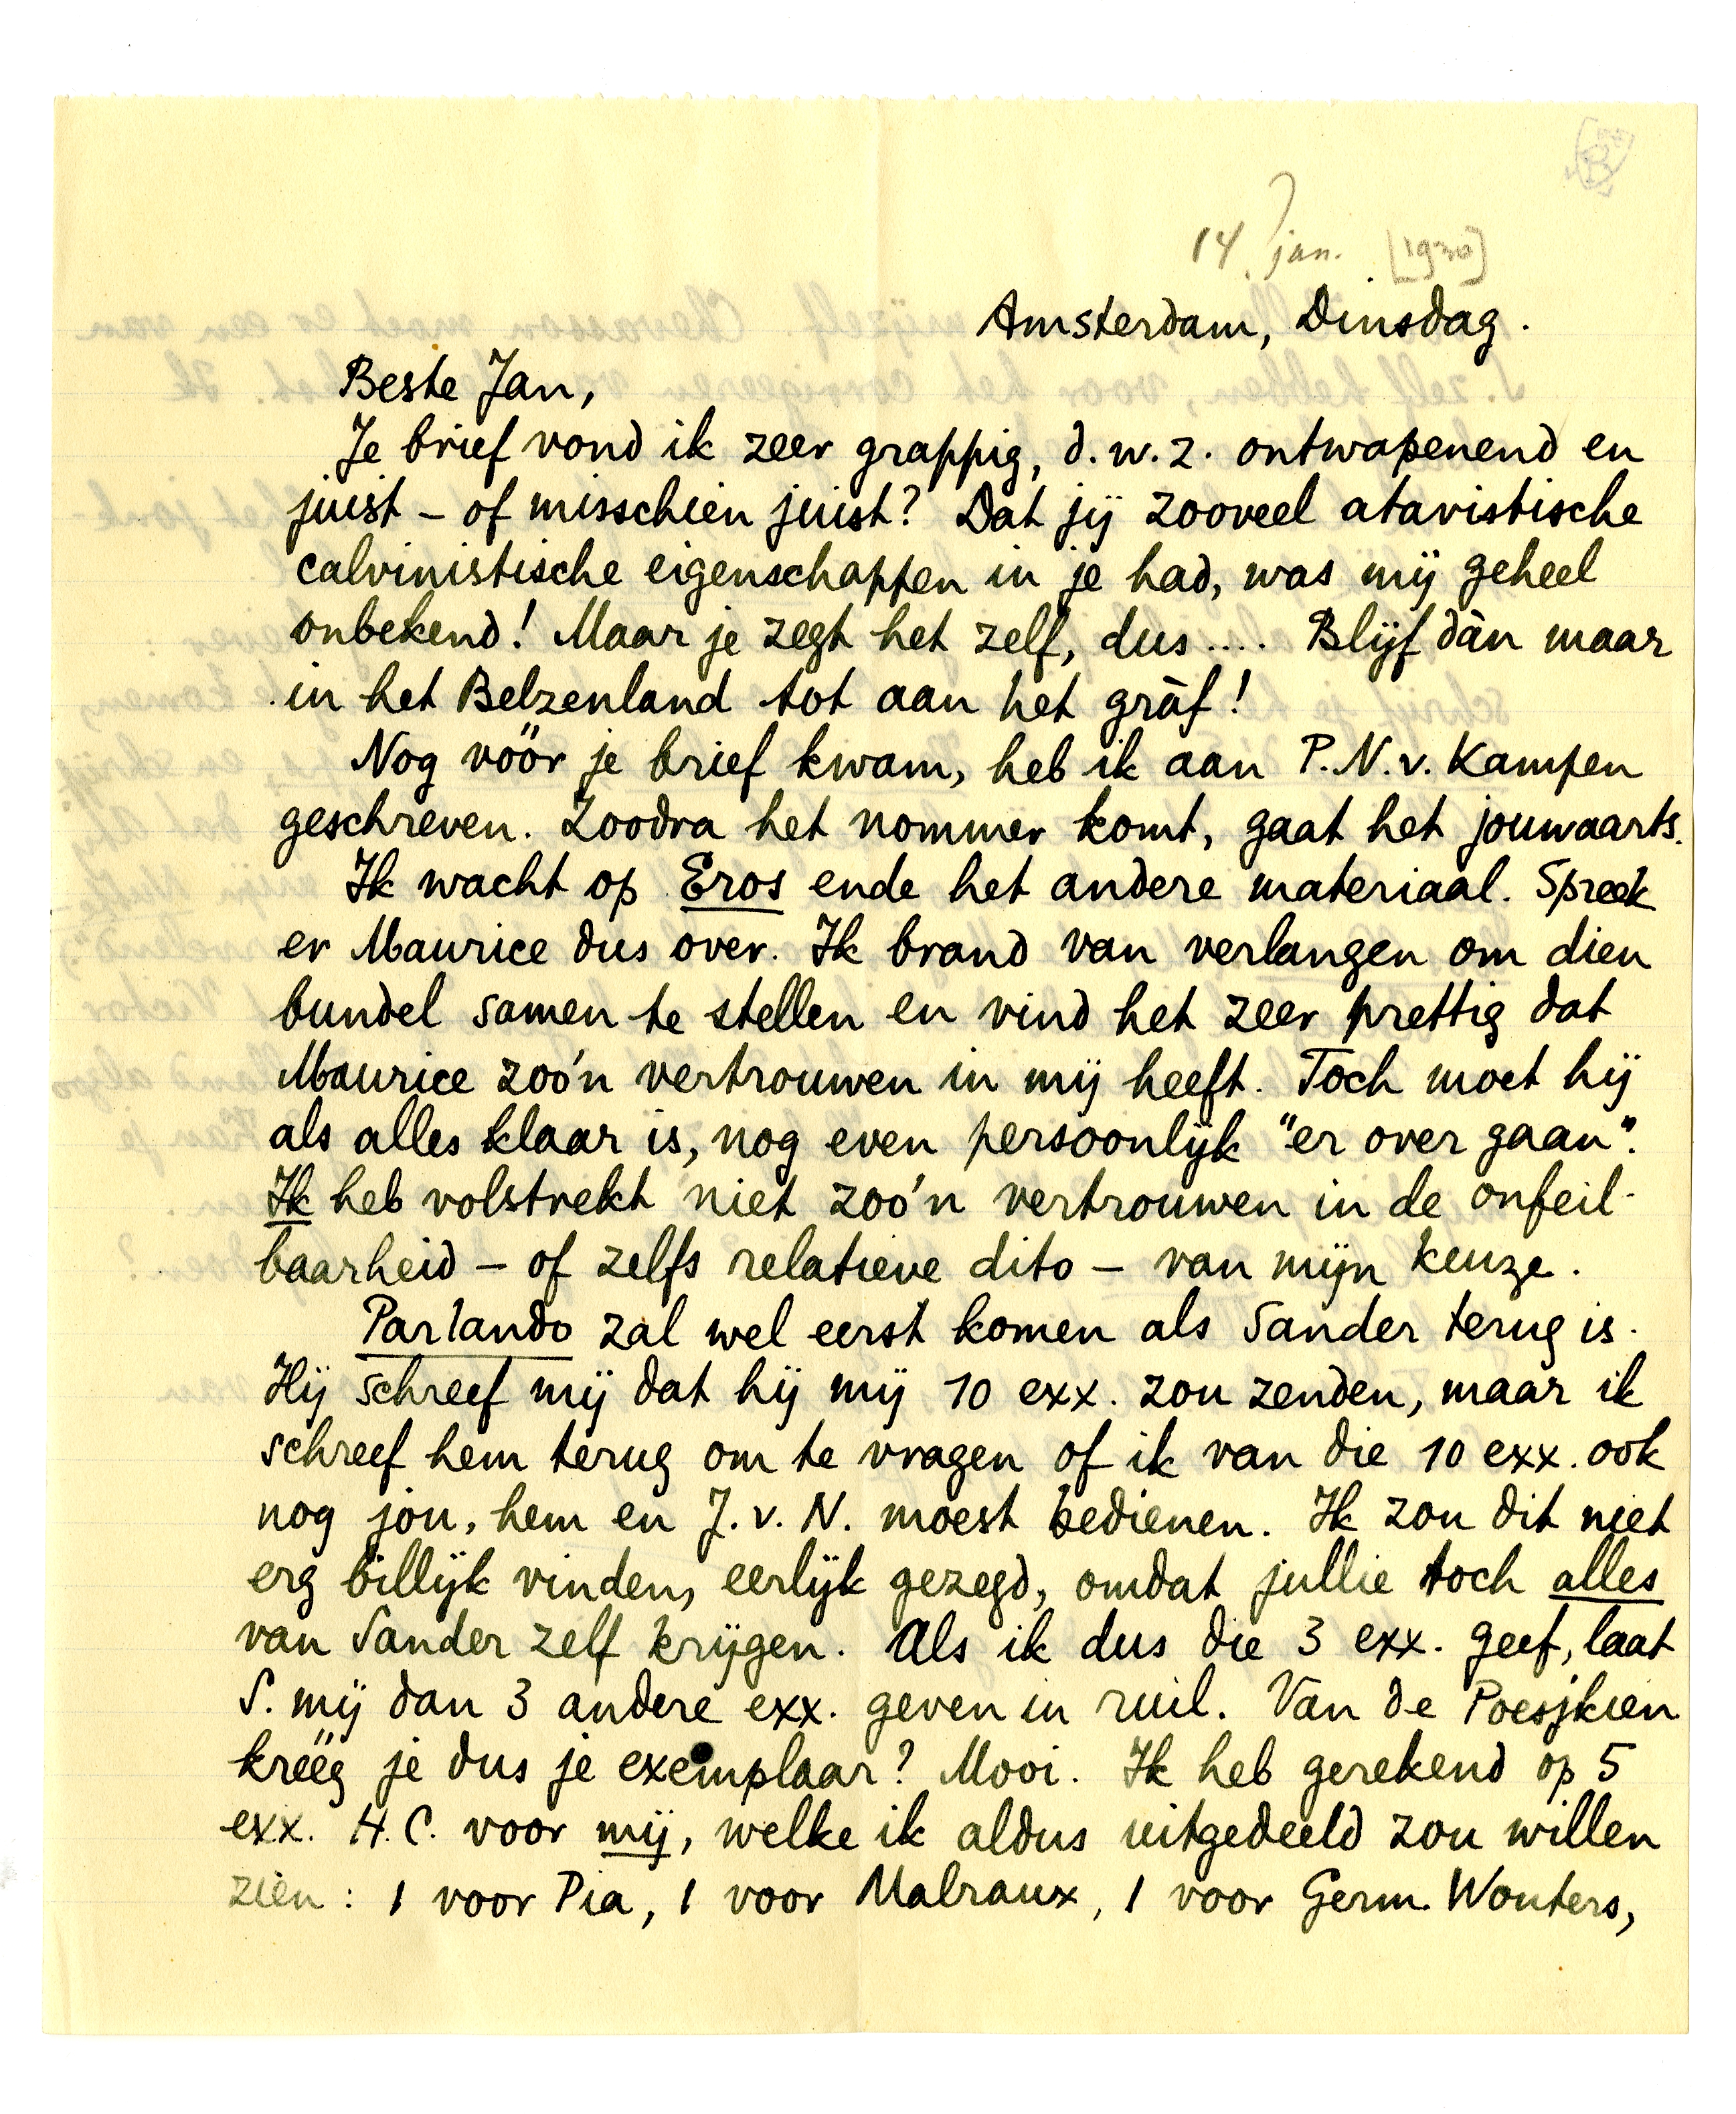 14 ? jan. [1930]
Amsterdam, Dinsdag.
Beste Jan,
Je brief vond ik zeer grappig, d.w.z. ontwapenend en
juist – of misschien juist? Dat jij zooveel atavistische
calvinistische eigenschappen in je had, was mij geheel
onbekend! Maar je zegt het zelf, dus.... Blijf dàn maar
in het Belzenland tot aan het gràf!
Nog vóór je brief kwam, heb ik aan P.N.v. Kampen
geschreven. Zoodra het nommer komt, gaat het jouwaarts.
Ik wacht op Eros ende het andere materiaal. Spreek
er Maurice dus over. Ik brand van verlangen om dien
bundel samen te stellen en vind het zeer prettig dat
Maurice zoo'n vertrouwen in mij heeft. Toch moet hij
als alles klaar is, nog even persoonlijk "er over gaan".
Ik heb volstrekt niet zoo'n vertrouwen in de onfeil-
baarheid – of zelfs relatieve dito – van mijn keuze.
Parlando zal wel eerst komen als Sander terug is.
Hij schreef mij dat hij mij 10 exx. zou zenden, maar ik
schreef hem terug om te vragen of ik van die 10 exx. ook
nog jou, hem en J.v.N. moest bedienen. Ik zou dit niet
erg billijk vinden, eerlijk gezegd, omdat jullie toch alles
van Sander zelf krijgen. Als ik dus die 3 exx. geef, laat
S. mij dan 3 andere exx. geven in ruil. Van de Poesjkien
kréég je dus je exemplaar? Mooi. Ik heb gerekend op 5
exx. H.C. voor mij, welke ik aldus uitgedeeld zou willen
zien: 1 voor Pia, 1 voor Malraux, 1 voor Germ. Wouters,